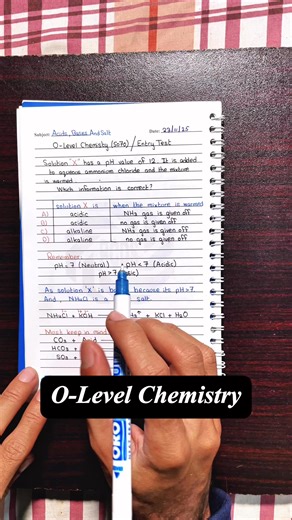 Subject: Acids, Bases And Salt Date: 23/11/25
O-Level Chemistry (5070) / Entry Test
Solution 'X' has a pH value of 12. It is added
to aqueous ammonium chloride and the mixture
is warmed.
Which information is correct?
solution X is when the mixture is warmed
A) acidic NH₃ gas is given off
B) acidic no gas is given off
C) alkaline NH₃ gas is given off
D) alkaline no gas is given off
Remember:
pH = 7 (Neutral) • pH < 7 (Acidic)
pH > 7
As solution 'X' is because its pH > 7.
And, NH₄Cl is a salt.
NH₄Cl + KOH + KCl + H₂O
keep in mind
CO₃ + Acid
HCO₃ +
SO₃ +
O-Level Chemistry